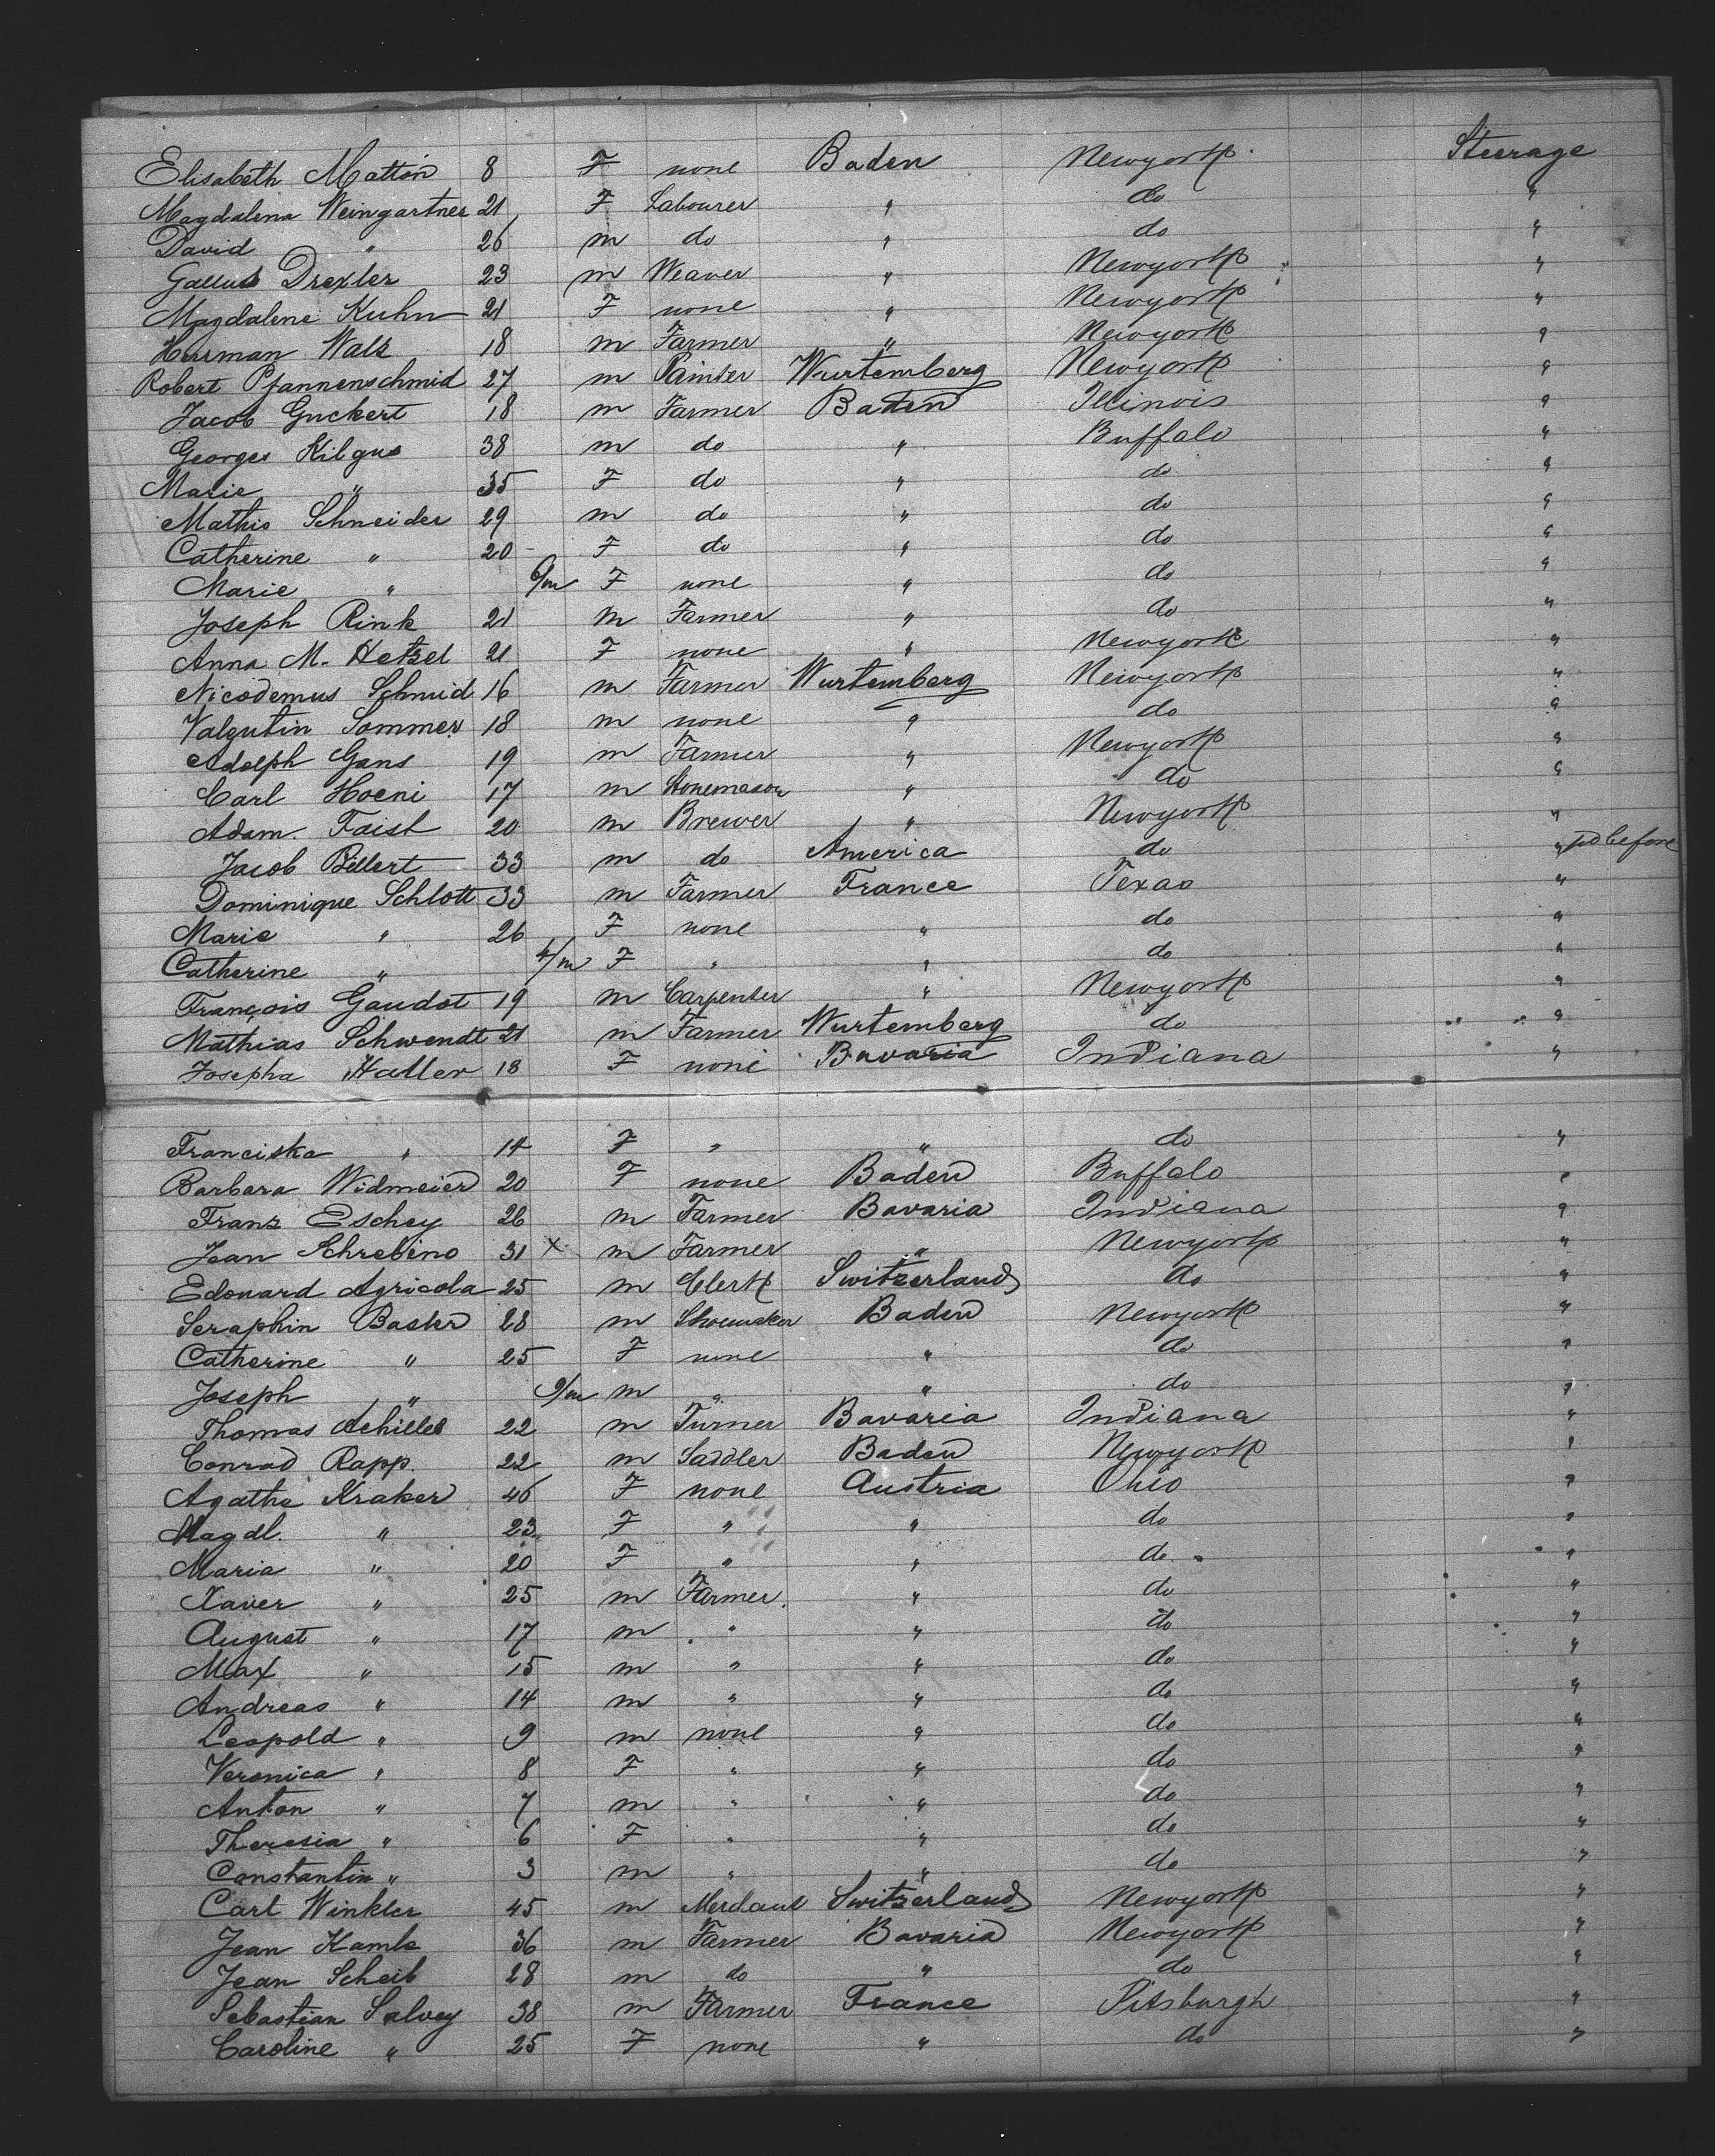 Elisabeth Mattin 8 F none Baden Newyork Steerage
Magdalena Weingartner 21 F Labourer " do "
David " 26 m do " do "
Gallus Drexler 23 m Weaver " Newyork "
Magdalene Kuhn 21 F none " Newyork "
Herman Walz 18 m Farmer " Newyork "
Robert Pfannenschmid 27 m Painter Wurtemberg Newyork "
Jacob Guckert 18 m Farmer Baden Illinois "
Georges Kilgus 38 m do " Buffalo "
Marie " 35 F do " do "
Mathis Schneider 29 m do " do "
Catherine " 20 F do " do "
Marie " 6/m F none " do "
Joseph Rink 21 m Farmer " do "
Anna M. Hetzel 21 F none " Newyork "
Nicodemus Schmid 16 m Farmer Wurtemberg Newyork "
Valentin Sommer 18 m none " do "
Adolph Gans 19 m Farmer " Newyork "
Carl Hoeni 17 m Stonemason " do "
Adam Faist 20 m Brewer " Newyork "
Jacob Billert 33 m do America do " before
Dominique Schlott 33 m Farmer France Texas "
Marie " 26 F none " do "
Catherine " 4/m F " " do "
François Gaudot 19 m Carpenter " Newyork "
Mathias Schwendt 21 m Farmer Wurtemberg do "
Josepha Haller 18 F none Bavaria Indiana "
Franciska " 14 F " " do "
Barbara Widmeier 20 F none Baden Buffalo "
Franz Eschey 26 m Farmer Bavaria Indiana "
Jean Schrebino 31 x m Farmer " Newyork "
Edouard Agricola 25 m Clerk Switzerland do "
Seraphin Basler 28 m Shoemaker Baden Newyork "
Catherine " 25 F none " do "
Joseph " 9/m m " " do "
Thomas Achilles 22 m Turner Bavaria Indiana "
Conrad Rapp 22 m Saddler Baden Newyork "
Agathe Kraker 46 F none Austria Ohio "
Magdl. " 23 F " " do "
Maria " 20 F " " do "
Xaver " 25 m Farmer " do "
August " 17 m " " do "
Max " 15 m " " do "
Andreas " 14 m " " do "
Leopold " 9 m none " do "
Veronica " 8 F " " do "
Anton " 7 m " " do "
Theresia " 6 F " " do "
Constantin " 3 m " " do "
Carl Winkler 45 m Merchant Switzerland Newyork "
Jean Kamb 36 m Farmer Bavaria Newyork "
Jean Scheib 28 m do " do "
Sebastian Salvey 38 m Farmer France Pitsburgh "
Caroline " 25 F none " do "